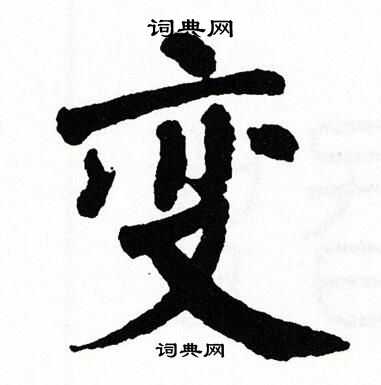 词典网
变
词典网